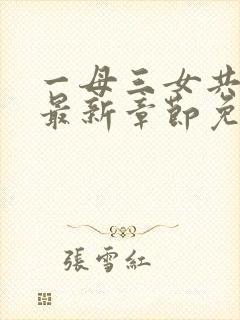 一母三女共
最新章節免
張雪紅